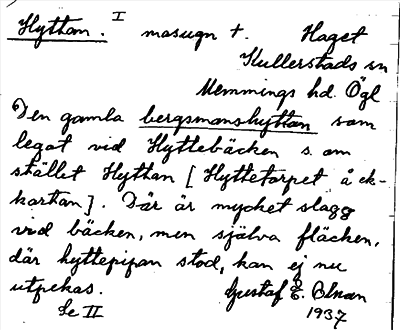 Hyttan. I masugn †. Haget
Kullerstads sn
Memmings hd. Ögl
Den gamla bergsmanshyttan som
legat vid Hyttebäcken s. om
stället Hyttan [Hyttetorpet å ek-
kartan]. Där är mycket slagg
vid bäcken, men själva fläcken,
där hyttepipan stod, kan ej nu
utpekas. Gustaf E. Olsson
Se II 1937